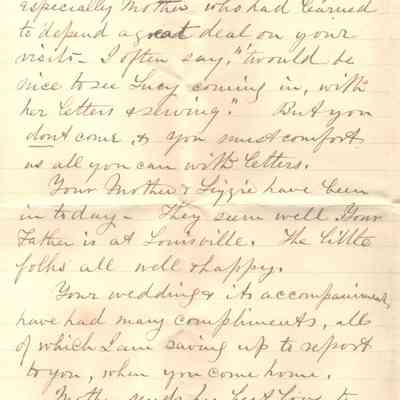 especially Mother, who had learned
to depend a great deal on your
visits - I often say, "'twould be
nice to see Lucy coming in, with
her letters & sewing." But you
dont come, & you must comfort
us all you can with letters.
Your Mother & Lizzie have been
in today - They seem well. Your
Father is at Louisville. The little
folks all well & happy.
Your wedding & its accompaniments
have had many compliments, all
of which I am saving up to report
to you, when you come home.
Mother sends her best love to